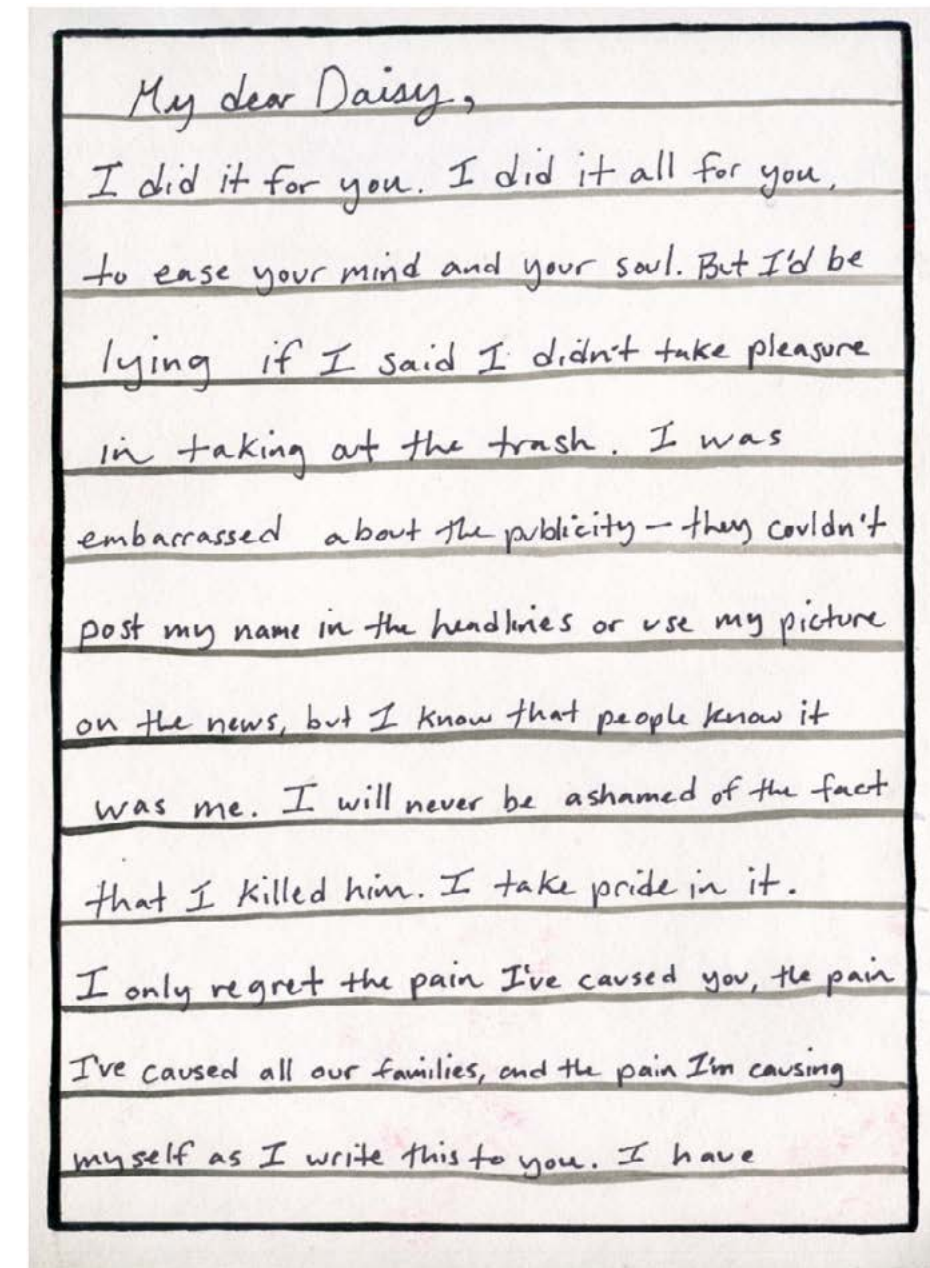 My dear Daisy,
I did it for you. I did it all for you,
to ease your mind and your soul. But I'd be
lying if I said I didn't take pleasure
in taking out the trash. I was
embarrassed about the publicity – they couldn't
post my name in the headlines or use my picture
on the news, but I know that people know it
was me. I will never be ashamed of the fact
that I killed him. I take pride in it.
I only regret the pain I've caused you, the pain
I've caused all our families, and the pain I'm causing
myself as I write this to you. I have